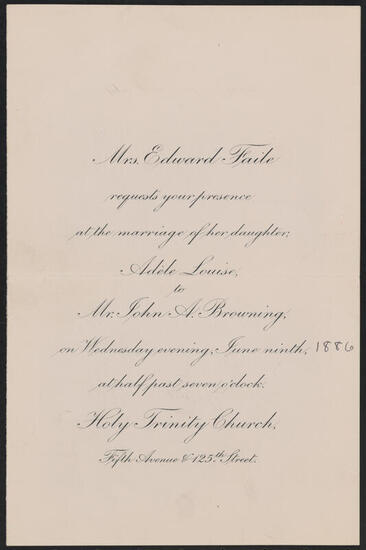 Mrs. Edward Faile
requests your presence
at the marriage of her daughter,
Adèle Louise,
to
Mr. John A. Browning,
on Wednesday evening, June ninth, 1886
at half past seven o'clock.
Holy Trinity Church,
Fifth Avenue & 125th Street.